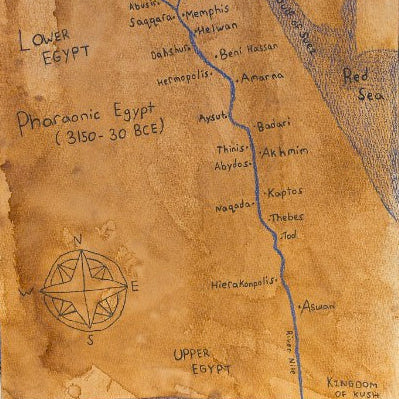 Abusir
Saqqara
Memphis
Helwan
LOWER
EGYPT
Dahshur
Beni Hassan
Hermopolis
Amarna
Red
Sea
Pharaonic Egypt
(3150-30 BCE)
Aysut
Badari
Thinis
Akhmim
Abydos
Kaptos
Naqada
Thebes
Tod
N
W
E
S
Hierakonpolis
Aswan
River Nile
UPPER
EGYPT
KINGDOM
OF KUSH